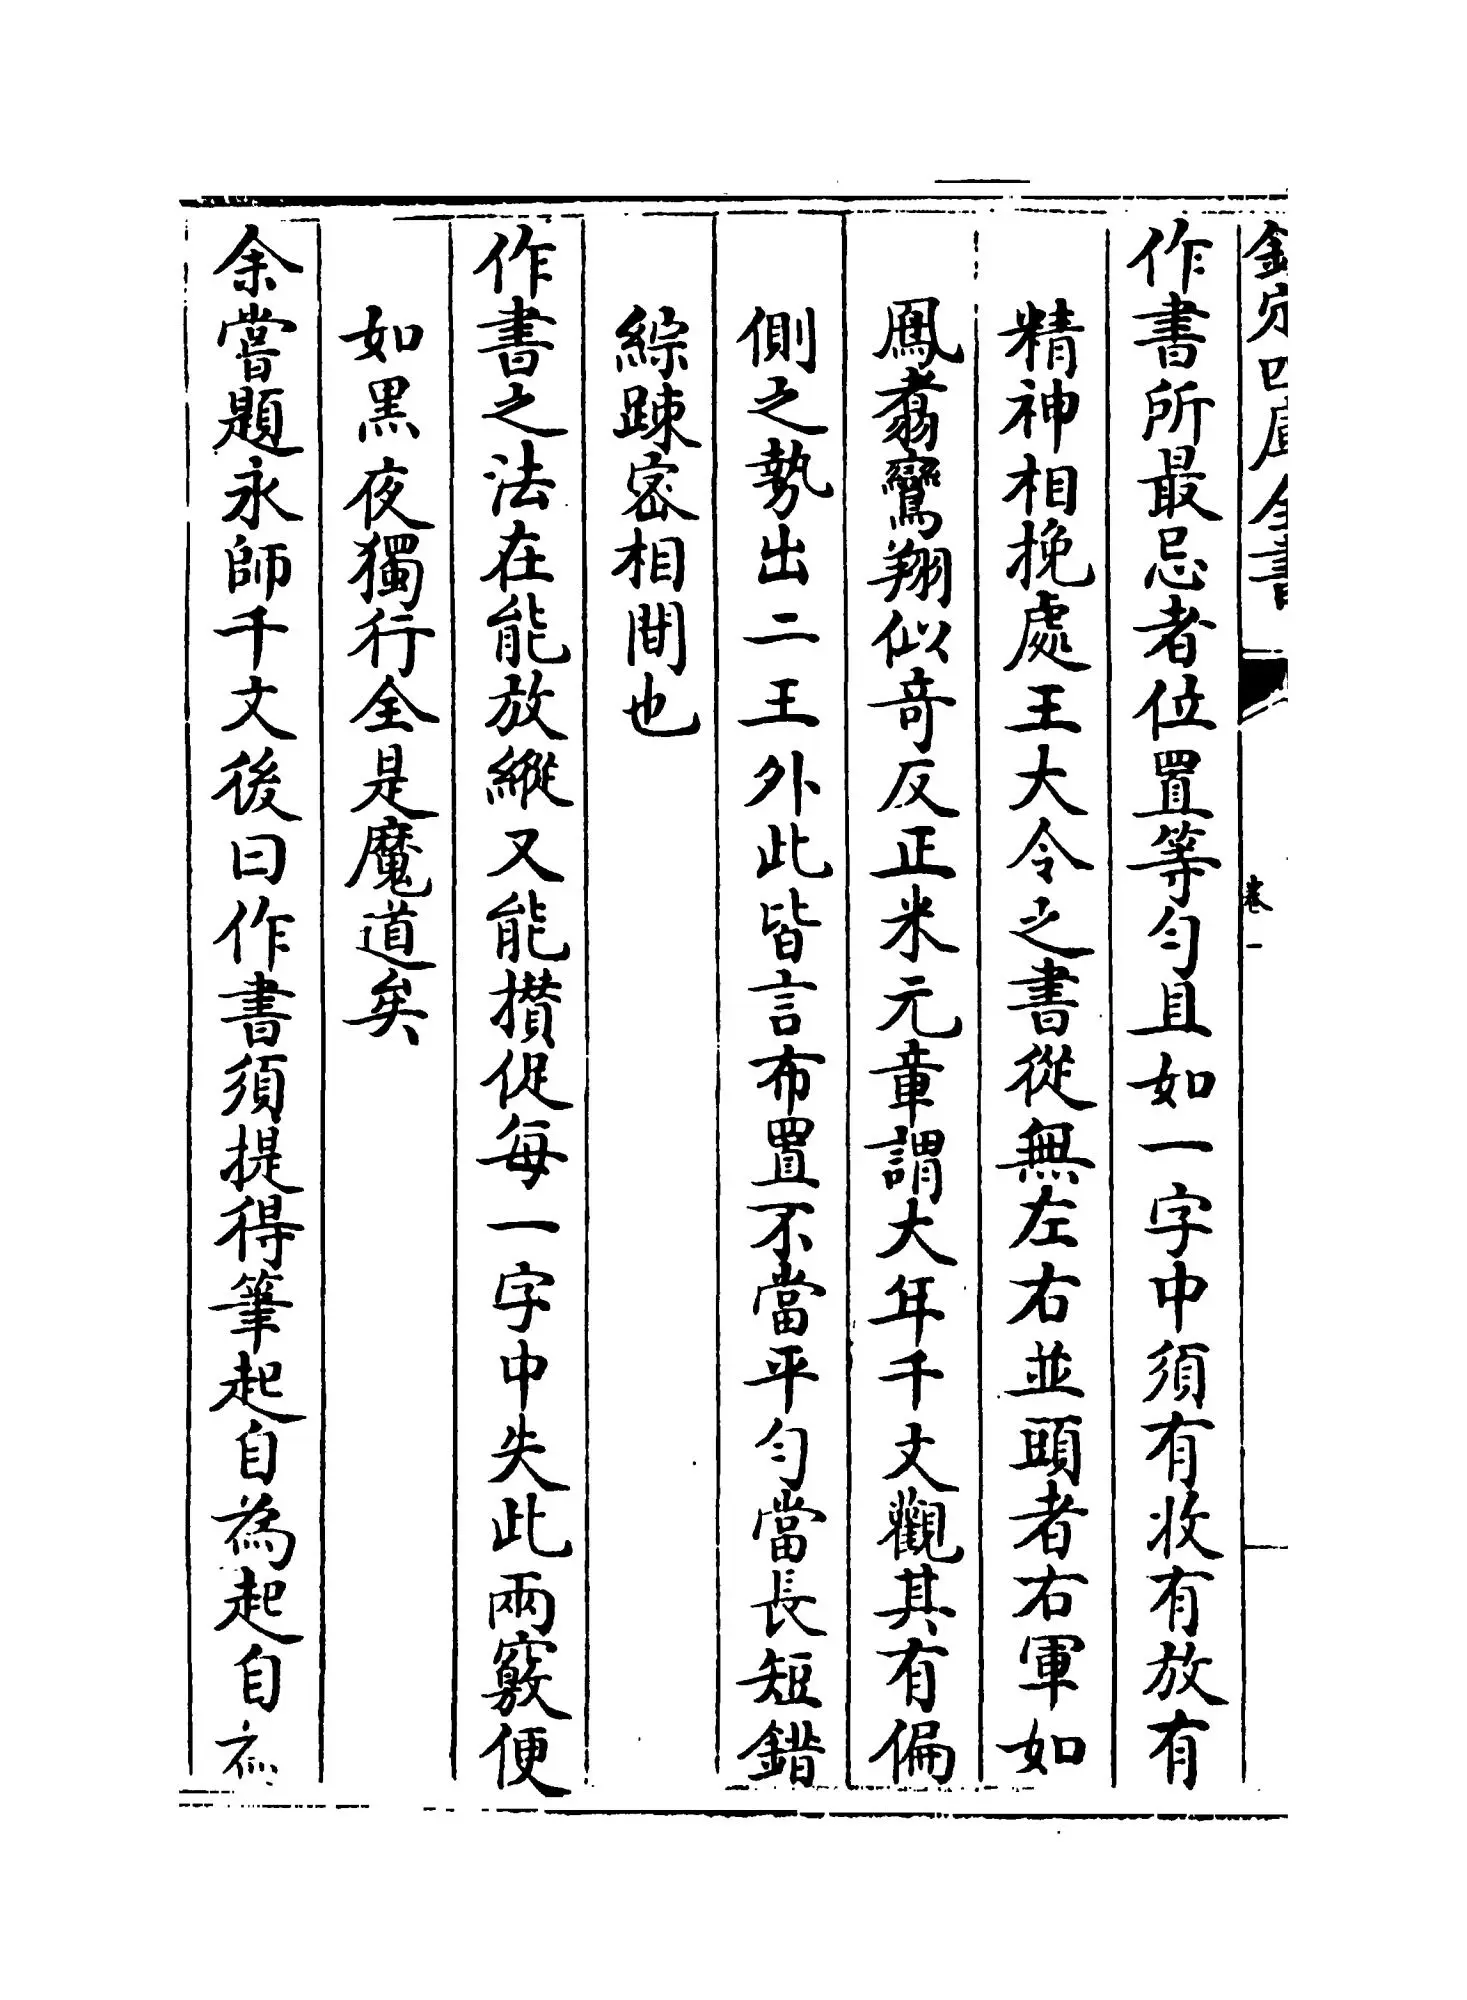 欽定四庫全書
卷一
作書所最忌者位置等勻且如一字中須有收有放有
精神相挽處王大令之書從無左右並頭者右軍如
鳳翥鸞翔似奇反正米元章謂大年千文觀其有偏
側之勢出二王外此皆言布置不當平勻當長短錯
綜踈宻相間也
作書之法在能放縱又能攅促每一字中失此兩竅便
如黑夜獨行全是魔道矣
余嘗題永師千文後曰作書須提得筆起自為起自